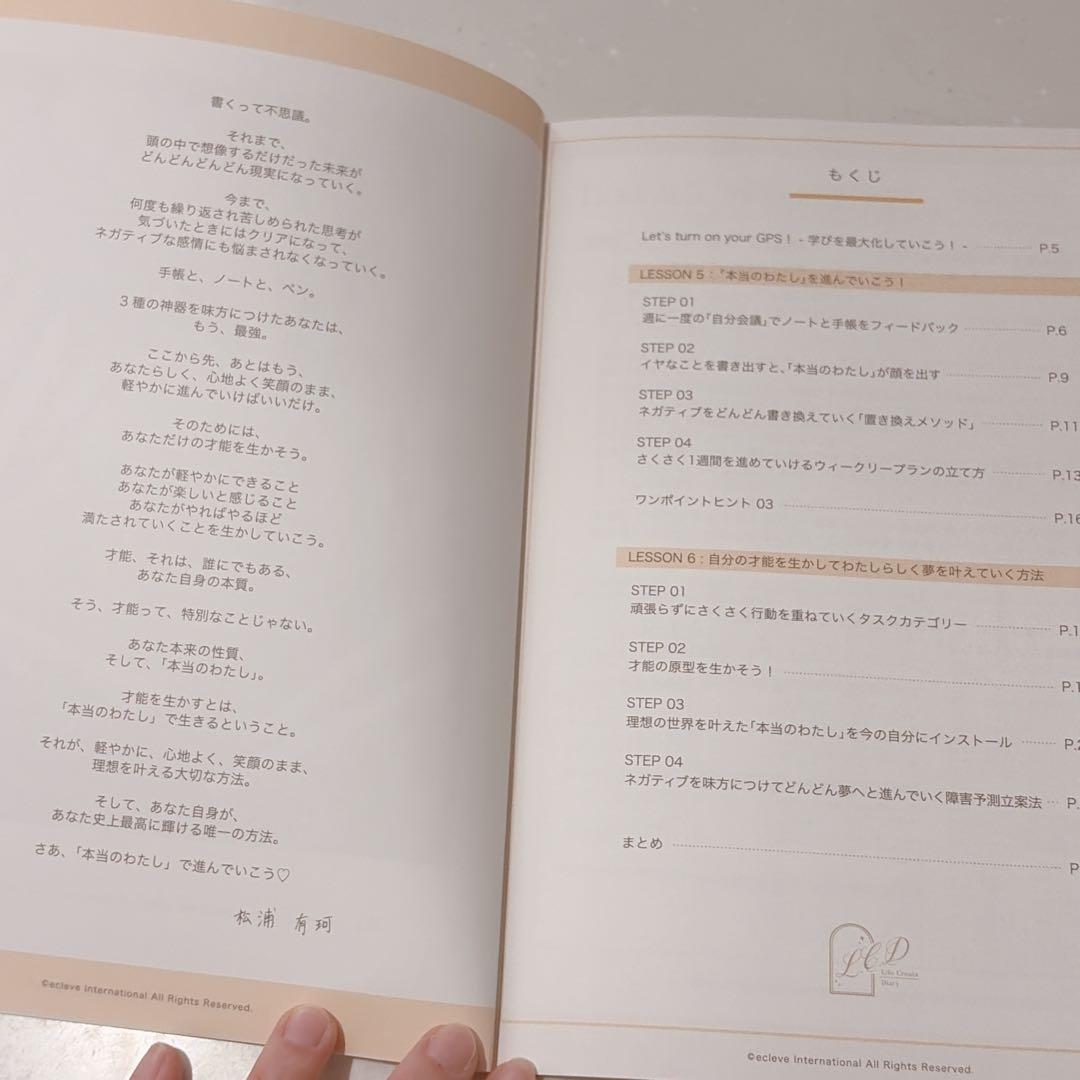 書くって不思議。
それまで、
頭の中で想像するだけだった未来が
どんどんどんどん現実になっていく。
今まで、
何度も繰り返され苦しめられた思考が
気づいたときにはクリアになって、
ネガティブな感情にも悩まされなくなっていく。
手帳と、ノートと、ペン。
3種の神器を味方につけたあなたは、
もう、最強。
ここから先、あとはもう、
あなたらしく、心地よく笑顔のまま、
軽やかに進んでいけばいいだけ。
そのためには、
あなただけの才能を生かそう。
あなたが軽やかにできること
あなたが楽しいと感じること
あなたがやればやるほど
満たされていくことを生かしていこう。
才能、それは、誰にでもある、
あなた自身の本質。
そう、才能って、特別なことじゃない。
あなた本来の性質、
そして、「本当のわたし」。
才能を生かすとは、
「本当のわたし」で生きるということ。
それが、軽やかに、心地よく、笑顔のまま、
理想を叶える大切な方法。
そして、あなた自身が、
あなた史上最高に輝ける唯一の方法。
さあ、「本当のわたし」で進んでいこう♡
松浦 有珂
©ecleve International All Rights Reserved.
もくじ
Let's turn on your GPS! - 学びを最大化していこう! - P.5
LESSON 5:「本当のわたし」を進んでいこう!
STEP 01
週に一度の「自分会議」でノートと手帳をフィードバック P.6
STEP 02
イヤなことを書き出すと、「本当のわたし」が顔を出す P.9
STEP 03
ネガティブをどんどん書き換えていく「置き換えメソッド」 P.11
STEP 04
さくさく1週間を進めていけるウィークリープランの立て方 P.13
ワンポイントヒント 03 P.16
LESSON 6:自分の才能を生かしてわたしらしく夢を叶えていく方法
STEP 01
頑張らずにさくさく行動を重ねていくタスクカテゴリー P.1
STEP 02
才能の原型を生かそう! P.1
STEP 03
理想の世界を叶えた「本当のわたし」を今の自分にインストール P.2
STEP 04
ネガティブを味方につけてどんどん夢へと進んでいく障害予測立案法 P.
まとめ P
L.C.D
Life Create
Diary
©ecleve International All Rights Reserved.